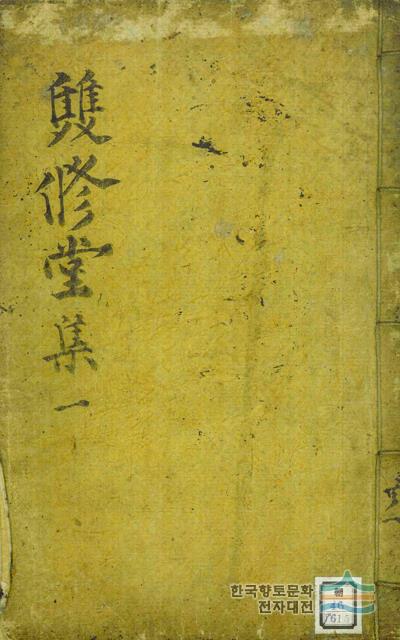 雙修堂集一
한국향토문화
전자대전